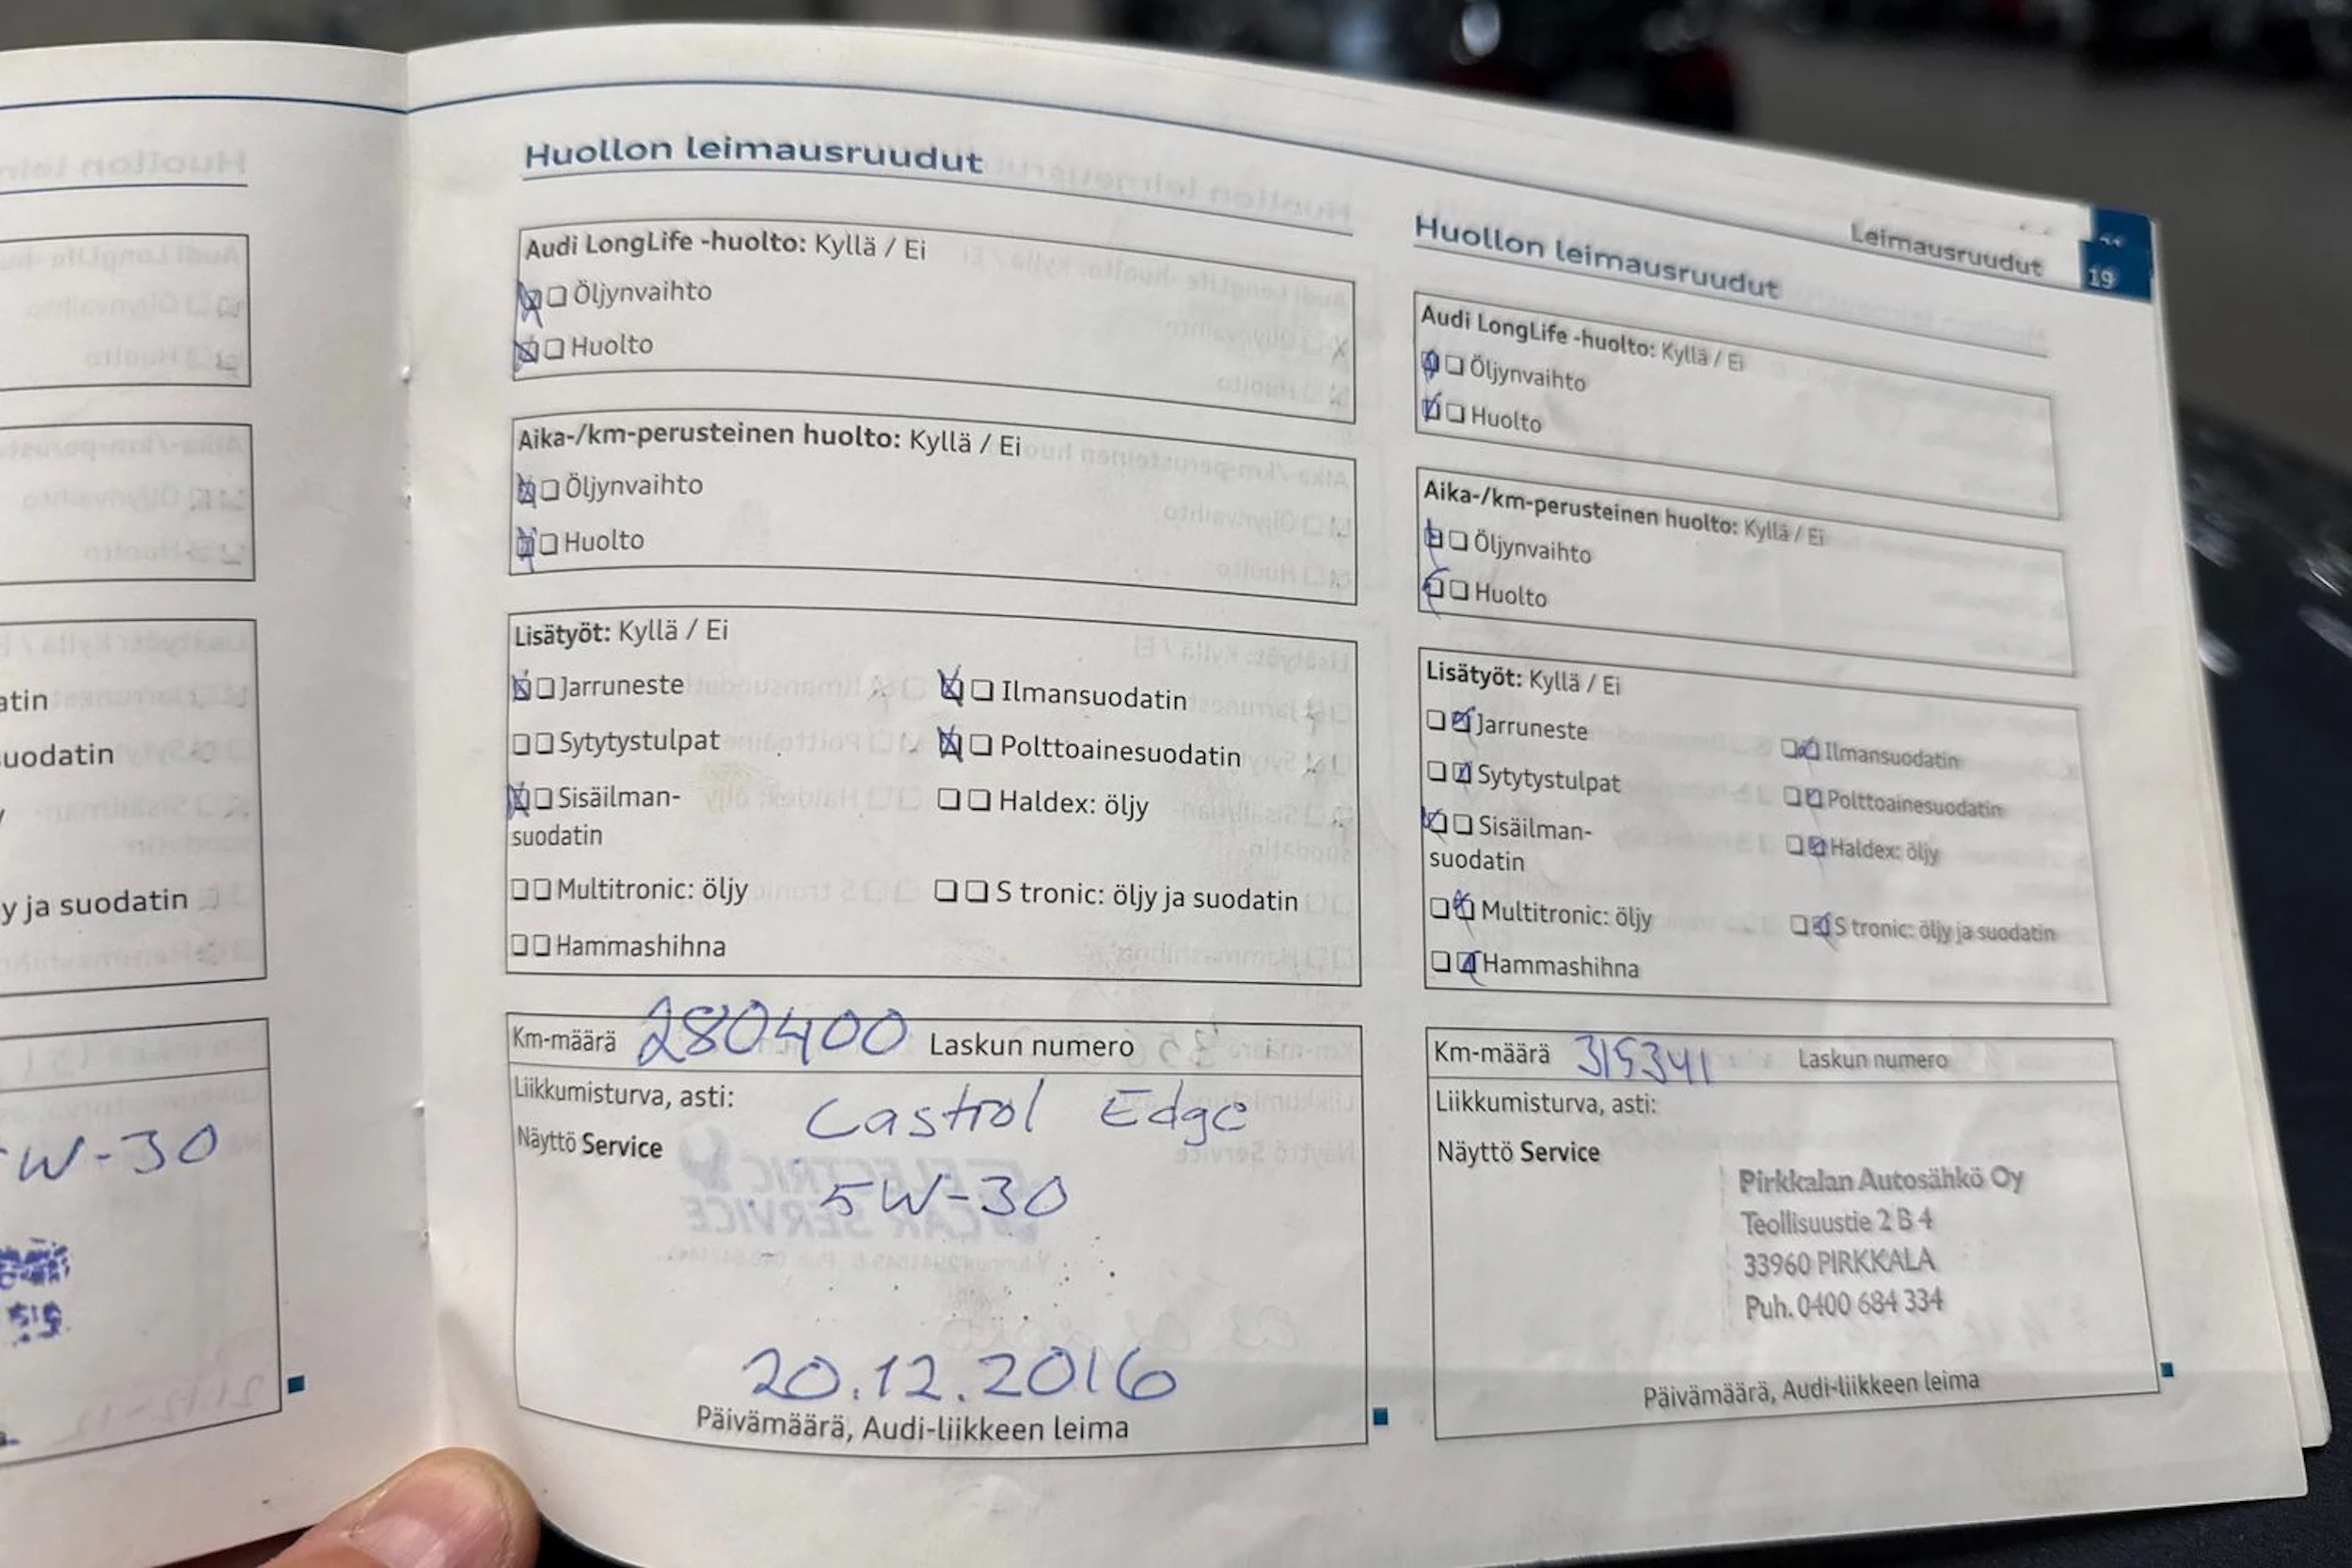 atin
uodatin
y ja suodatin
W-30
Huollon leimausruudut
Audi LongLife -huolto: Kyllä / Ei
Öljynvaihto
Huolto
Aika-/km-perusteinen huolto: Kyllä / Ei
Öljynvaihto
Huolto
Lisätyöt: Kyllä / Ei
Jarruneste Ilmansuodatin
Sytytystulpat Polttoainesuodatin
Sisäilman- Haldex: öljy
suodatin
Multitronic: öljy S tronic: öljy ja suodatin
Hammashihna
Km-määrä 280400 Laskun numero
Liikkumisturva, asti: Castrol Edge
Näyttö Service
5W-30
20.12.2016
Päivämäärä, Audi-liikkeen leima
Leimausruudut 19
Huollon leimausruudut
Audi LongLife -huolto: Kyllä / Ei
Öljynvaihto
Huolto
Aika-/km-perusteinen huolto: Kyllä / Ei
Öljynvaihto
Huolto
Lisätyöt: Kyllä / Ei
Jarruneste Ilmansuodatin
Sytytystulpat Polttoainesuodatin
Sisäilman- Haldex: öljy
suodatin
Multitronic: öljy S tronic: öljy ja suodatin
Hammashihna
Km-määrä 315341 Laskun numero
Liikkumisturva, asti:
Näyttö Service
Pirkkalan Autosähkö Oy
Teollisuustie 2 B 4
33960 PIRKKALA
Puh. 0400 684 334
Päivämäärä, Audi-liikkeen leima